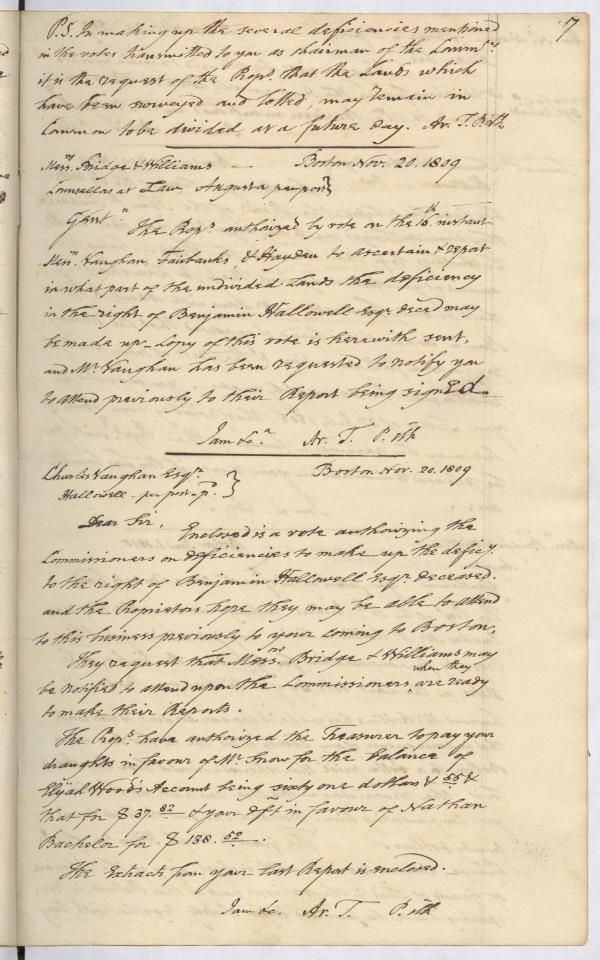 7
P.S. In making up the several deficiencies mentioned
in the votes transmitted to you as chairman of the Commee.
it is the request of the Props. that the Lands which
have been surveyed and lotted, may remain in
Common to be divided at a future day. Ar. T.
Messrs. Bridge & Williams — Boston Nov. 20. 1809
Counsellos at Law Augusta per post}
Gentn.
The Props. authorized by vote on the 16th instant
Messrs. Vaughan, Fairbanks, & Hayden to ascertain & report
in what part of the undivided Lands the deficiency
in the right of Benjamin Hallowell Esqr. decead may
be made up — Copy of this vote is herewith sent,
and Mr. Vaughan has been requested to notify you
to attend previously to their Report being signed.
I am &ca. Ar. T. P. Clk
Charles Vaughan Esqr. } Boston Nov. 20. 1809
Hallowell — per post — p.
Dear Sir,
Enclosed is a vote authorizing the
Commissioners on deficiencies to make up the deficy.
to the right of Benjamin Hallowell Esqr. deceased.
and the Proprietors hope they may be able to attend
to this business previously to your coming to Boston,
They request that Messrs. Bridge & Williams may
be notified to attend upon the Commissioners when they are ready
to make their Reports.
The Props. have authorized the Treasurer to pay your
draughts in favour of Mr. Snow for the balance of
Elijah Wood's Account being sixty one dollars & 55 &
that for $ 37.82 & your dft in favour of Nathan
Bachelor for $ 138.52.
The Extracts from your last Report is enclosed.
I am &c. Ar. T. P. Clk